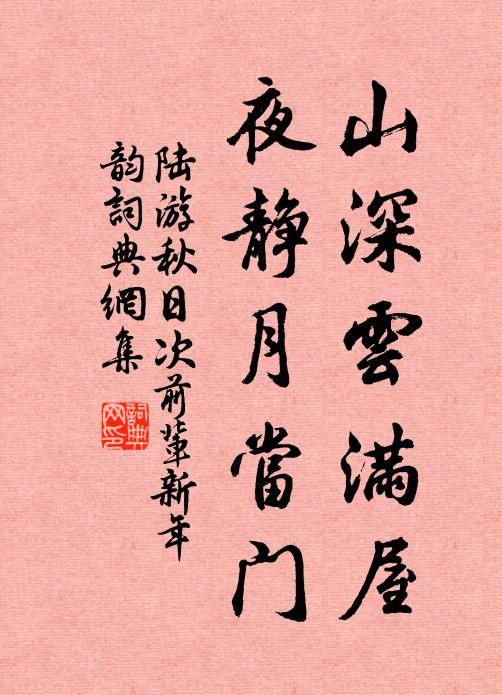 山深雲滿屋
夜静月當门
陆游秋日次前輩新年
韵詞典網集
詞典
网印